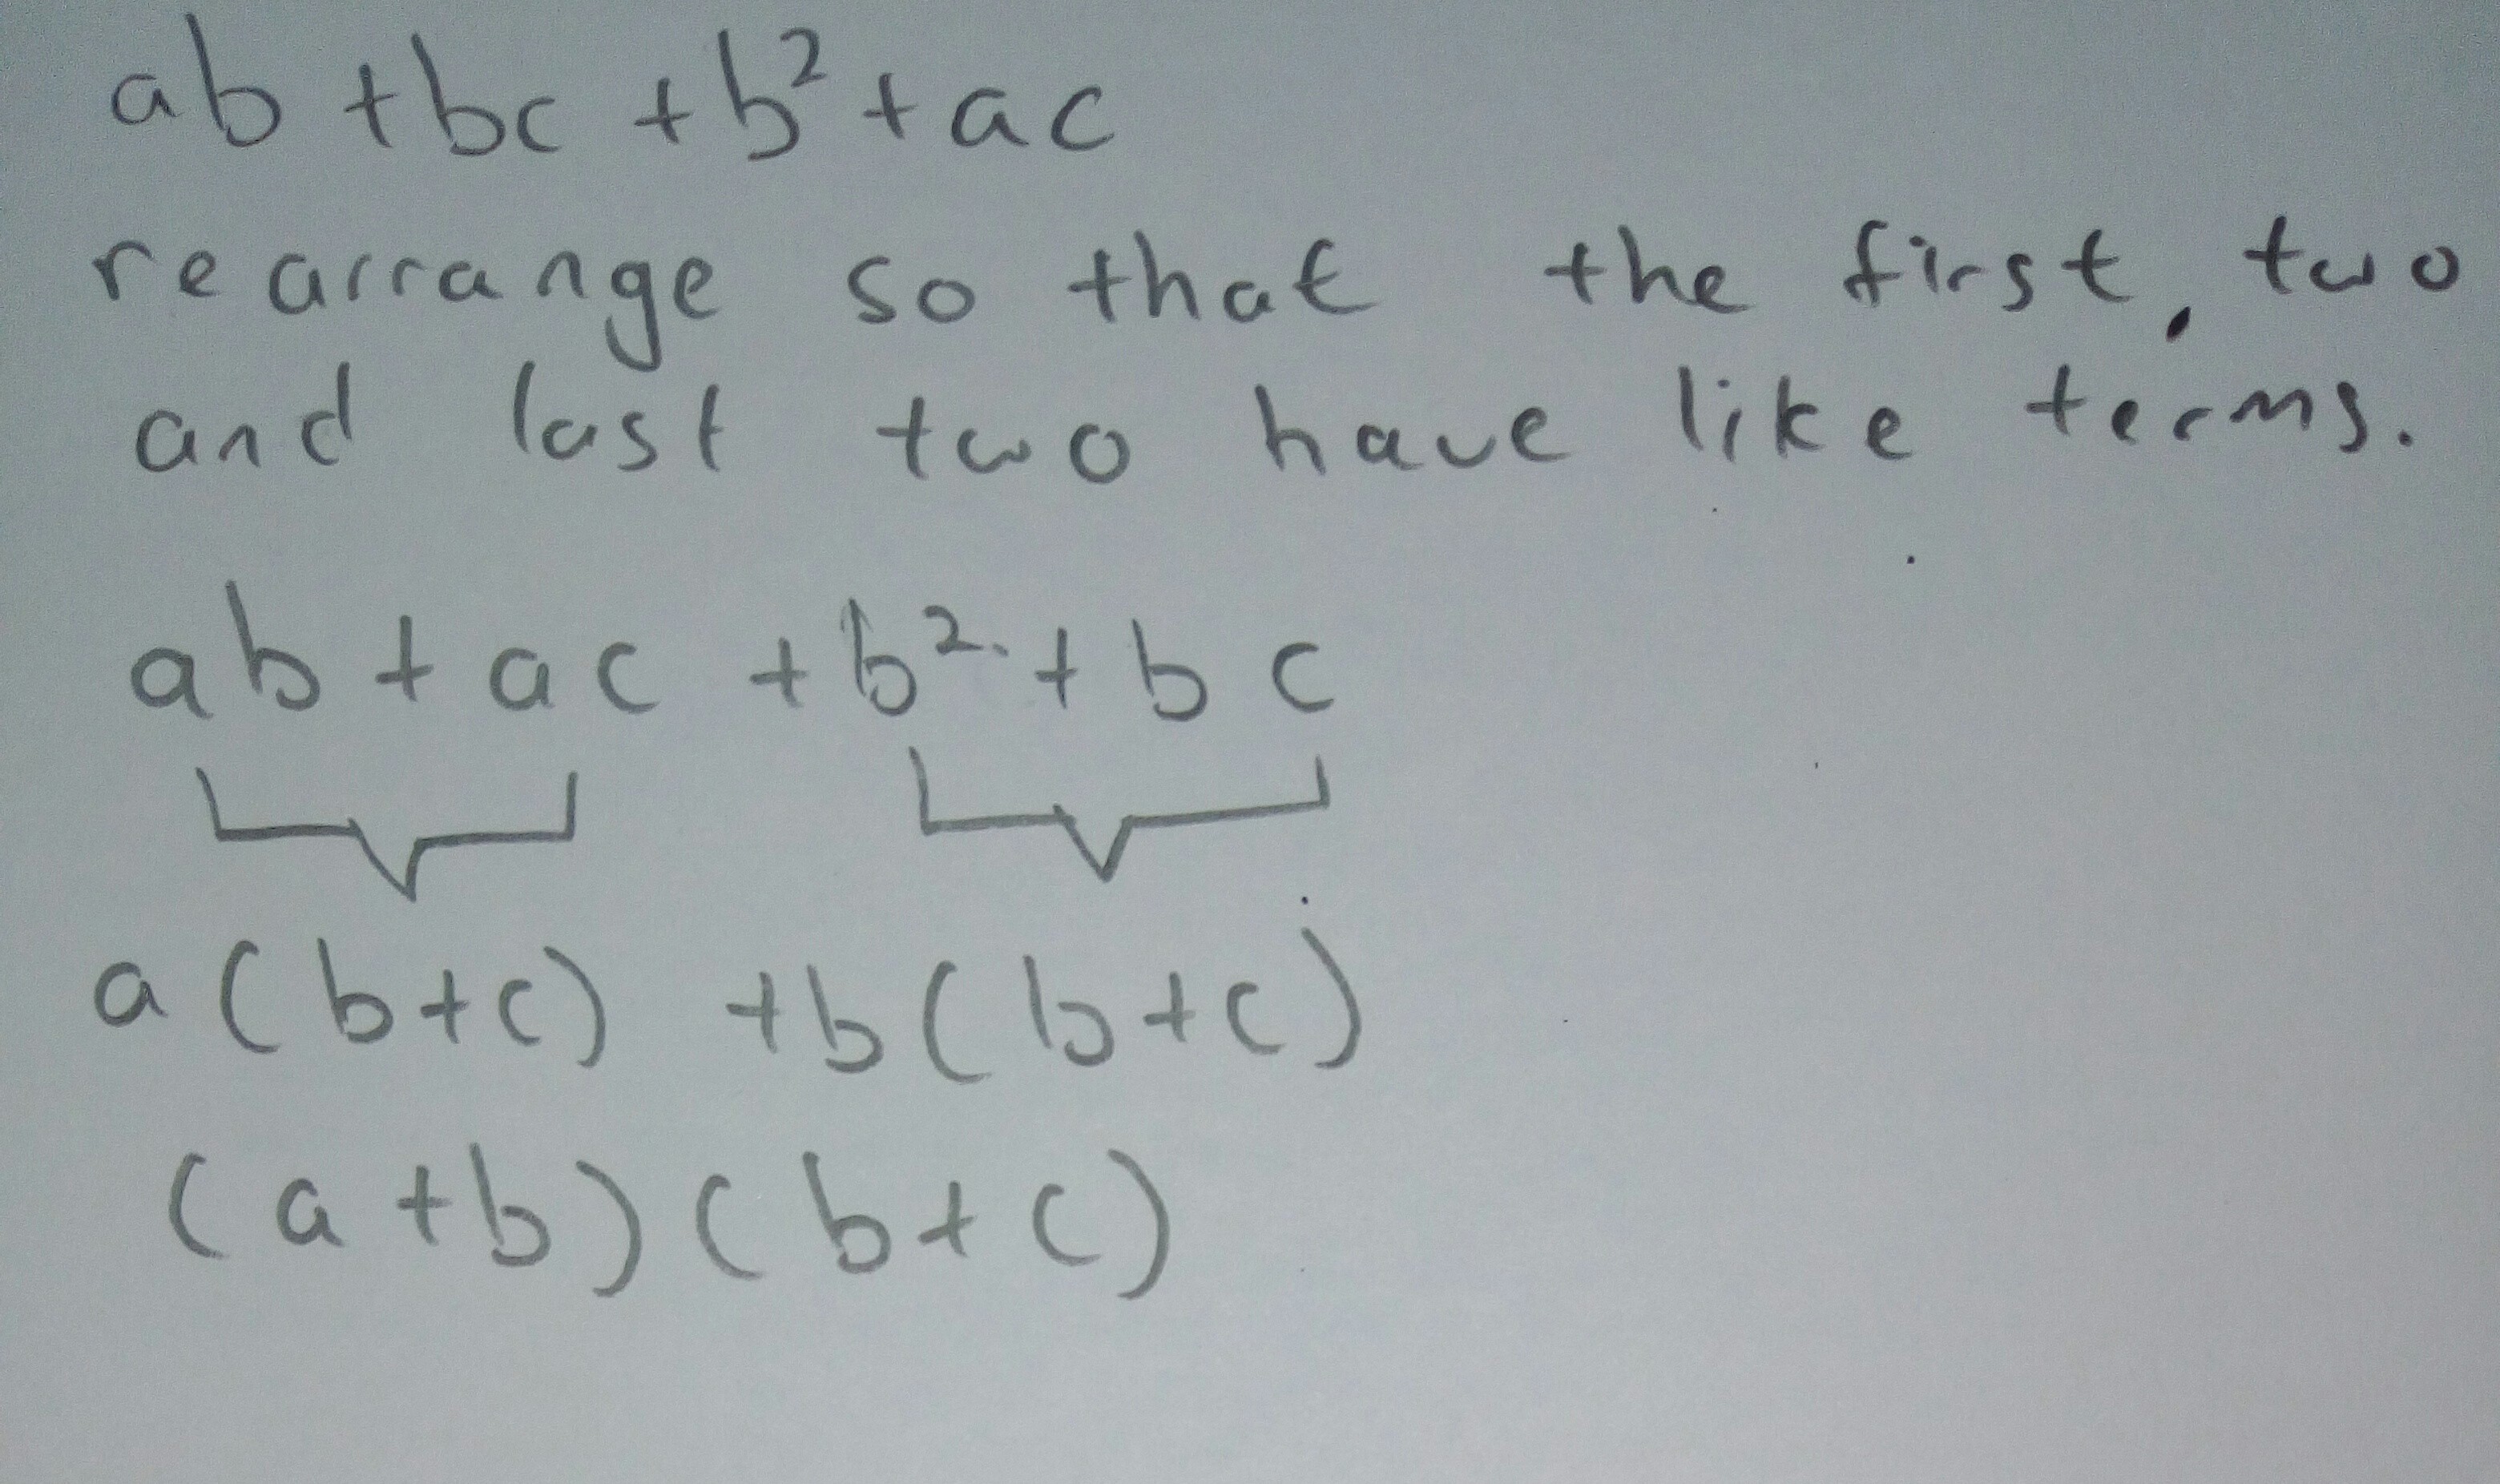 ab + bc + b² + ac
rearrange so that the first, two
and last two have like terms.
ab + ac + b² + bc
a(b+c) + b(b+c)
(a+b)(b+c)